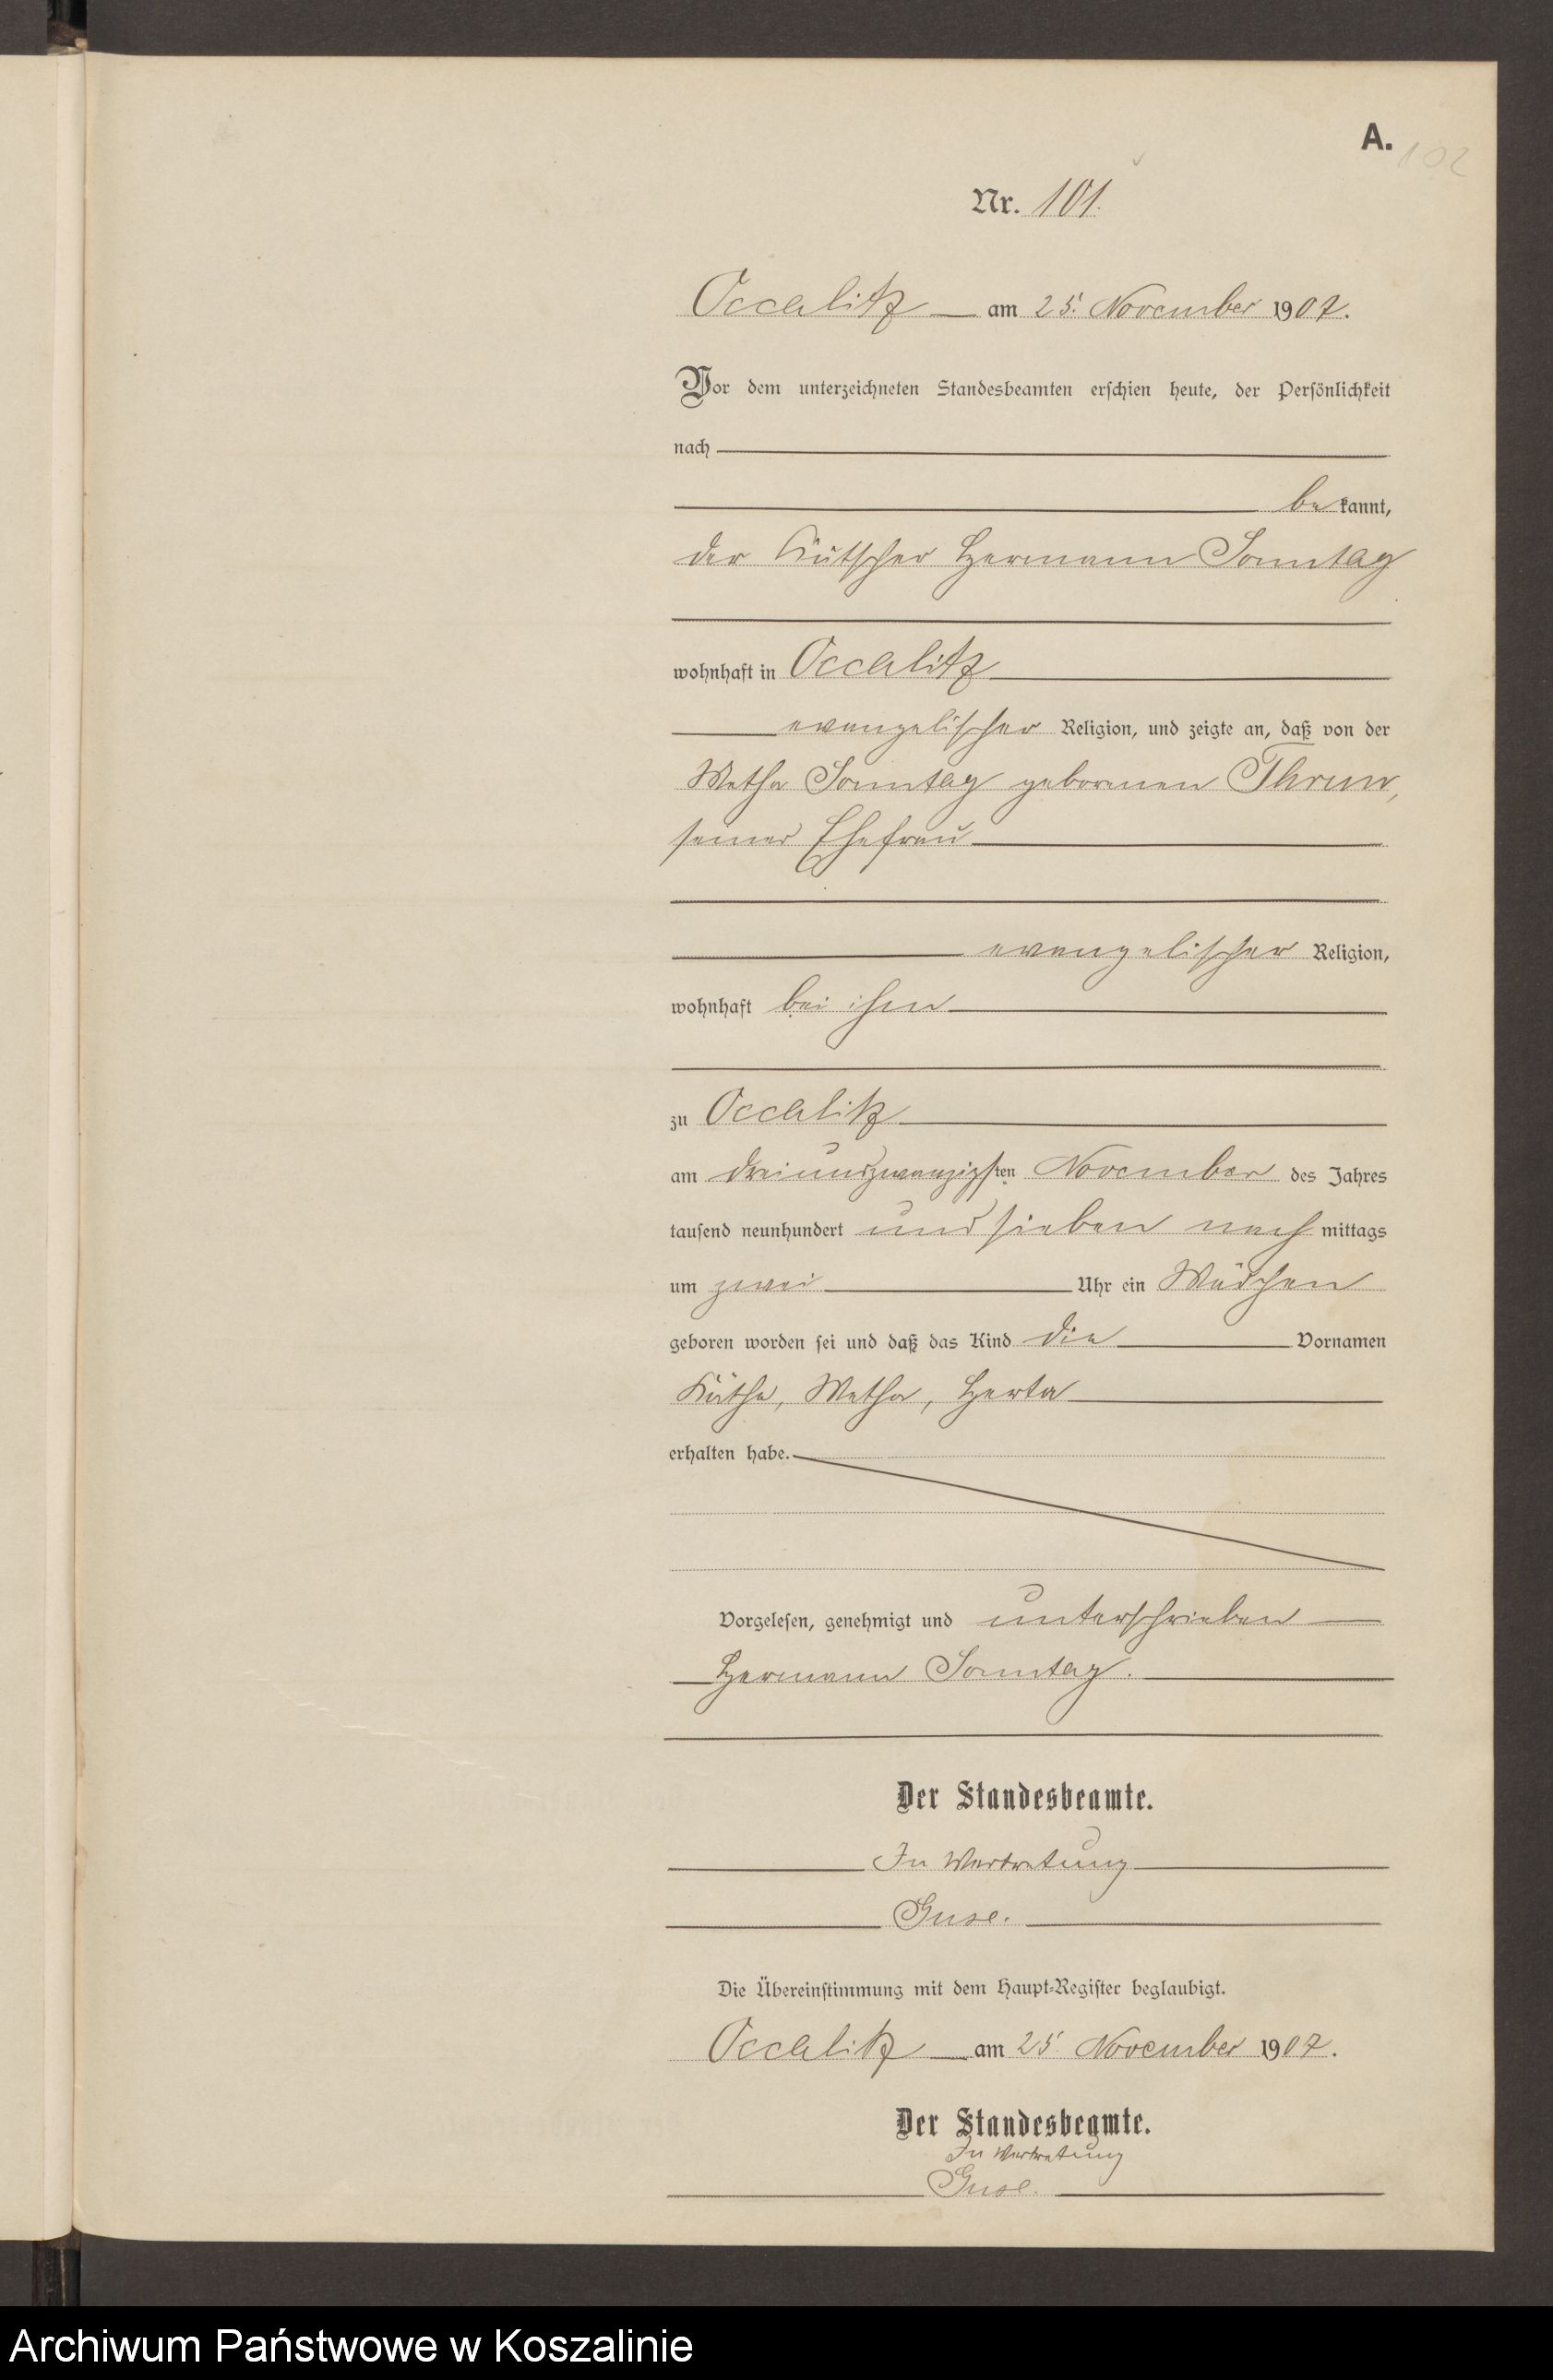 A.
102
Nr. 101.
Occalitz am 25. November 1907.
Vor dem unterzeichneten Standesbeamten erschien heute, der Persönlichkeit
nach
be kannt,
der Kutscher Hermann Sonntag
wohnhaft in Occalitz
evangelischer Religion, und zeigte an, daß von der
Metha Sonntag geborenen Thrun,
seiner Ehefrau
evangelischer Religion,
wohnhaft bei ihm
zu Occalitz
am dreiundzwanzigsten November des Jahres
tausend neunhundert und sieben nach mittags
um zwei Uhr ein Mädchen
geboren worden sei und daß das Kind die Vornamen
Käthe, Metha, Herta
erhalten habe.
Vorgelesen, genehmigt und unterschrieben
Hermann Sonntag.
Der Standesbeamte.
In Vertretung
Guse.
Die Übereinstimmung mit dem Haupt-Register beglaubigt.
Occalitz am 25. November 1907.
Der Standesbeamte.
In Vertretung
Guse.
Archiwum Państwowe w Koszalinie